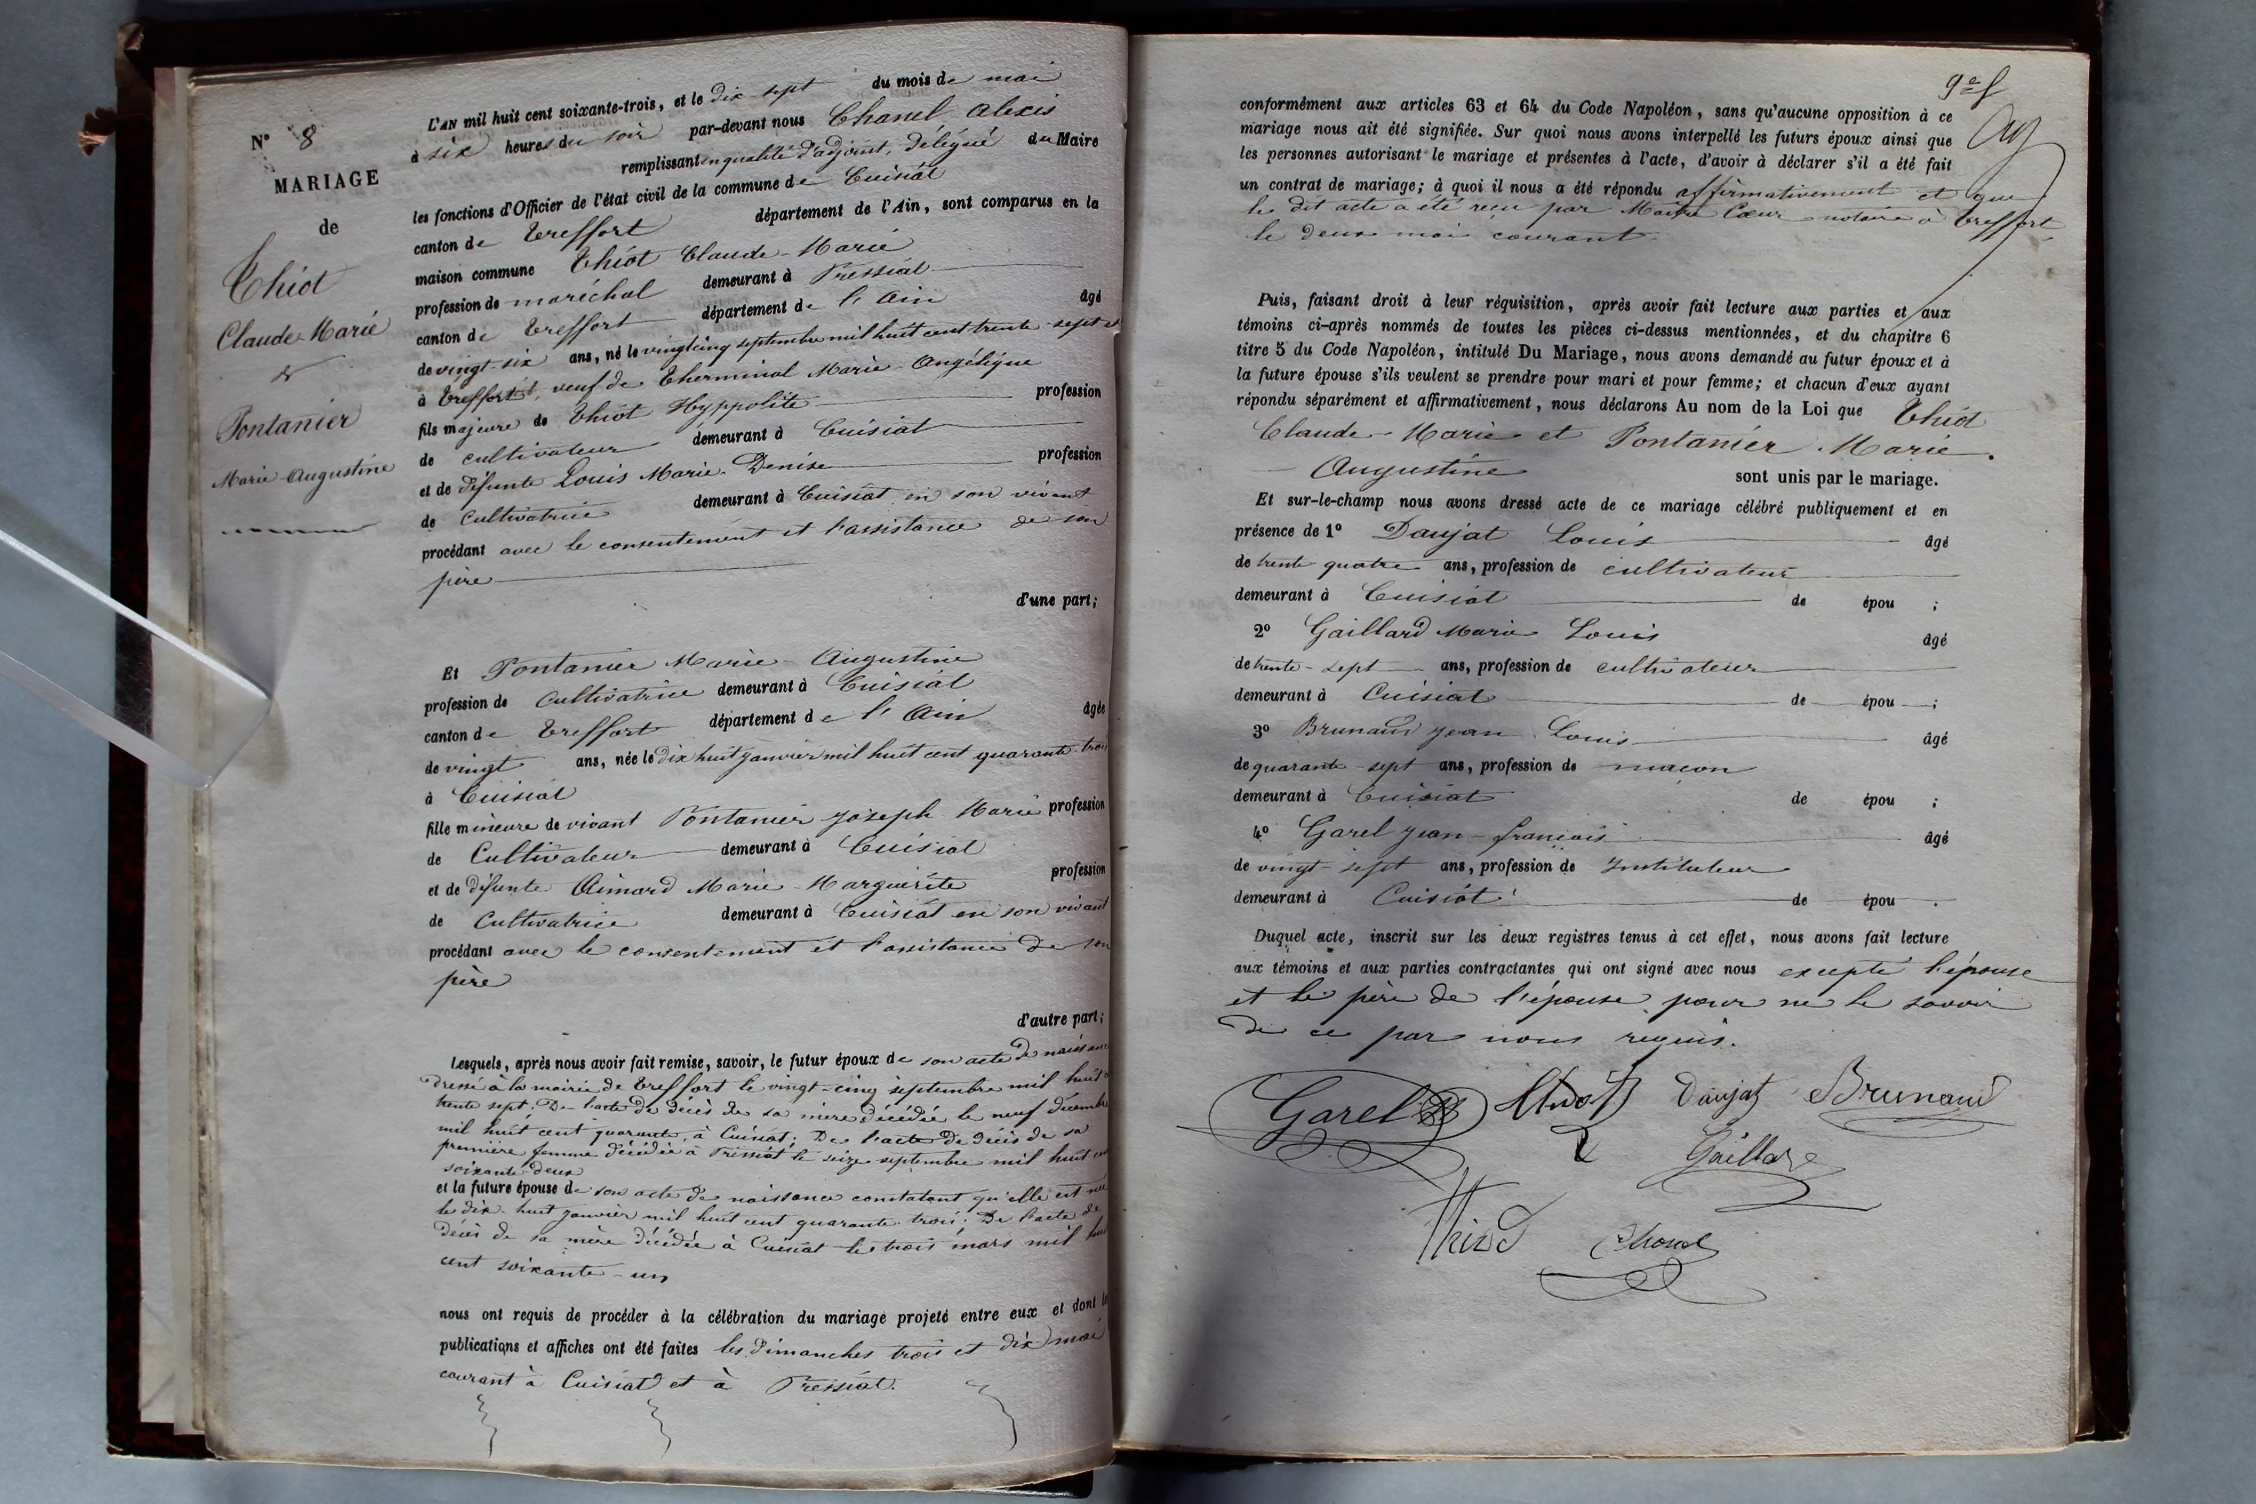 N° 8
MARIAGE
de
Thiot
Claude-Marie
&
Pontanier
Marie-Augustine
L'AN mil huit cent soixante-trois, et le dix-sept du mois de mai
à six heures du soir par-devant nous Chanel Alexis
remplissant en qualité d'adjoint, délégué du Maire
les fonctions d'Officier de l'état civil de la commune de Cuisiat
canton de Treffort département de l'Ain, sont comparus en la
maison commune Thiot Claude-Marie
profession de maréchal demeurant à Pressiat
canton de Treffort département de l'Ain âgé
de vingt-six ans, né le vingt cinq septembre mil huit cent trente-sept et
à Treffort, veuf de Therminal Marie-Angélique
fils majeure de Thiot Hyppolite profession
de cultivateur demeurant à Cuisiat
et de défunte Louis Marie-Denise profession
de Cultivatrice demeurant à Cuisiat en son vivant
procédant avec le consentement et l'assistance de son
père
d'une part;
Et Pontanier Marie-Augustine
profession de Cultivatrice demeurant à Cuisiat
canton de Treffort département de l'Ain âgée
de vingt ans, née le dix huit janvier mil huit cent quarante-trois
à Cuisiat
fille mineure de vivant Pontanier Joseph Marie profession
de Cultivateur demeurant à Cuisiat
et de défunte Aimard Marie-Marguerite profession
de Cultivatrice demeurant à Cuisiat en son vivant
procédant avec le consentement et l'assistance de son
père
d'autre part;
Lesquels, après nous avoir fait remise, savoir, le futur époux de son acte de naissance
dressé à la mairie de Treffort le vingt-cinq septembre mil huit
trente sept. De l'acte de décès de sa mère décédée le neuf décembre
mil huit cent quarante, à Cuisiat; De l'acte de décès de sa
première femme décédée à Pressiat le seize septembre mil huit cent
soixante deux
et la future épouse de son acte de naissance constatant qu'elle est née
le dix-huit janvier mil huit cent quarante-trois; De l'acte de
décès de sa mère décédée à Cuisiat le trois mars mil huit
cent soixante-un
nous ont requis de procéder à la célébration du mariage projeté entre eux et dont le
publications et affiches ont été faites les dimanches trois et dix mai
courant à Cuisiat et à Pressiat.
9e f
conformément aux articles 63 et 64 du Code Napoléon, sans qu'aucune opposition à ce
mariage nous ait été signifiée. Sur quoi nous avons interpellé les futurs époux ainsi que
les personnes autorisant le mariage et présentes à l'acte, d'avoir à déclarer s'il a été fait
un contrat de mariage; à quoi il nous a été répondu affirmativement et que
le dit acte a été reçu par Maître Cœur notaire à Treffort
le deux mai courant.
Puis, faisant droit à leur réquisition, après avoir fait lecture aux parties et aux
témoins ci-après nommés de toutes les pièces ci-dessus mentionnées, et du chapitre 6
titre 5 du Code Napoléon, intitulé Du Mariage, nous avons demandé au futur époux et à
la future épouse s'ils veulent se prendre pour mari et pour femme; et chacun d'eux ayant
répondu séparément et affirmativement, nous déclarons Au nom de la Loi que Thiot
Claude-Marie et Pontanier Marie-
Augustine sont unis par le mariage.
Et sur-le-champ nous avons dressé acte de ce mariage célébré publiquement et en
présence de 1° Daujat Louis âgé
de trente quatre ans, profession de cultivateur
demeurant à Cuisiat de épou ;
2° Gaillard Marie Louis âgé
de trente-sept ans, profession de cultivateur
demeurant à Cuisiat de épou ;
3° Brunaud Jean Louis âgé
de quarante-sept ans, profession de maçon
demeurant à Cuisiat de épou ;
4° Garel Jean-François âgé
de vingt-sept ans, profession de Instituteur
demeurant à Cuisiat de épou .
Duquel acte, inscrit sur les deux registres tenus à cet effet, nous avons fait lecture
aux témoins et aux parties contractantes qui ont signé avec nous excepté l'épouse
et le père de l'épouse pour ne le savoir
de ce par nous requis.
Garel Thiot Daujat Brunaud
Gaillard
Thiot Chanel